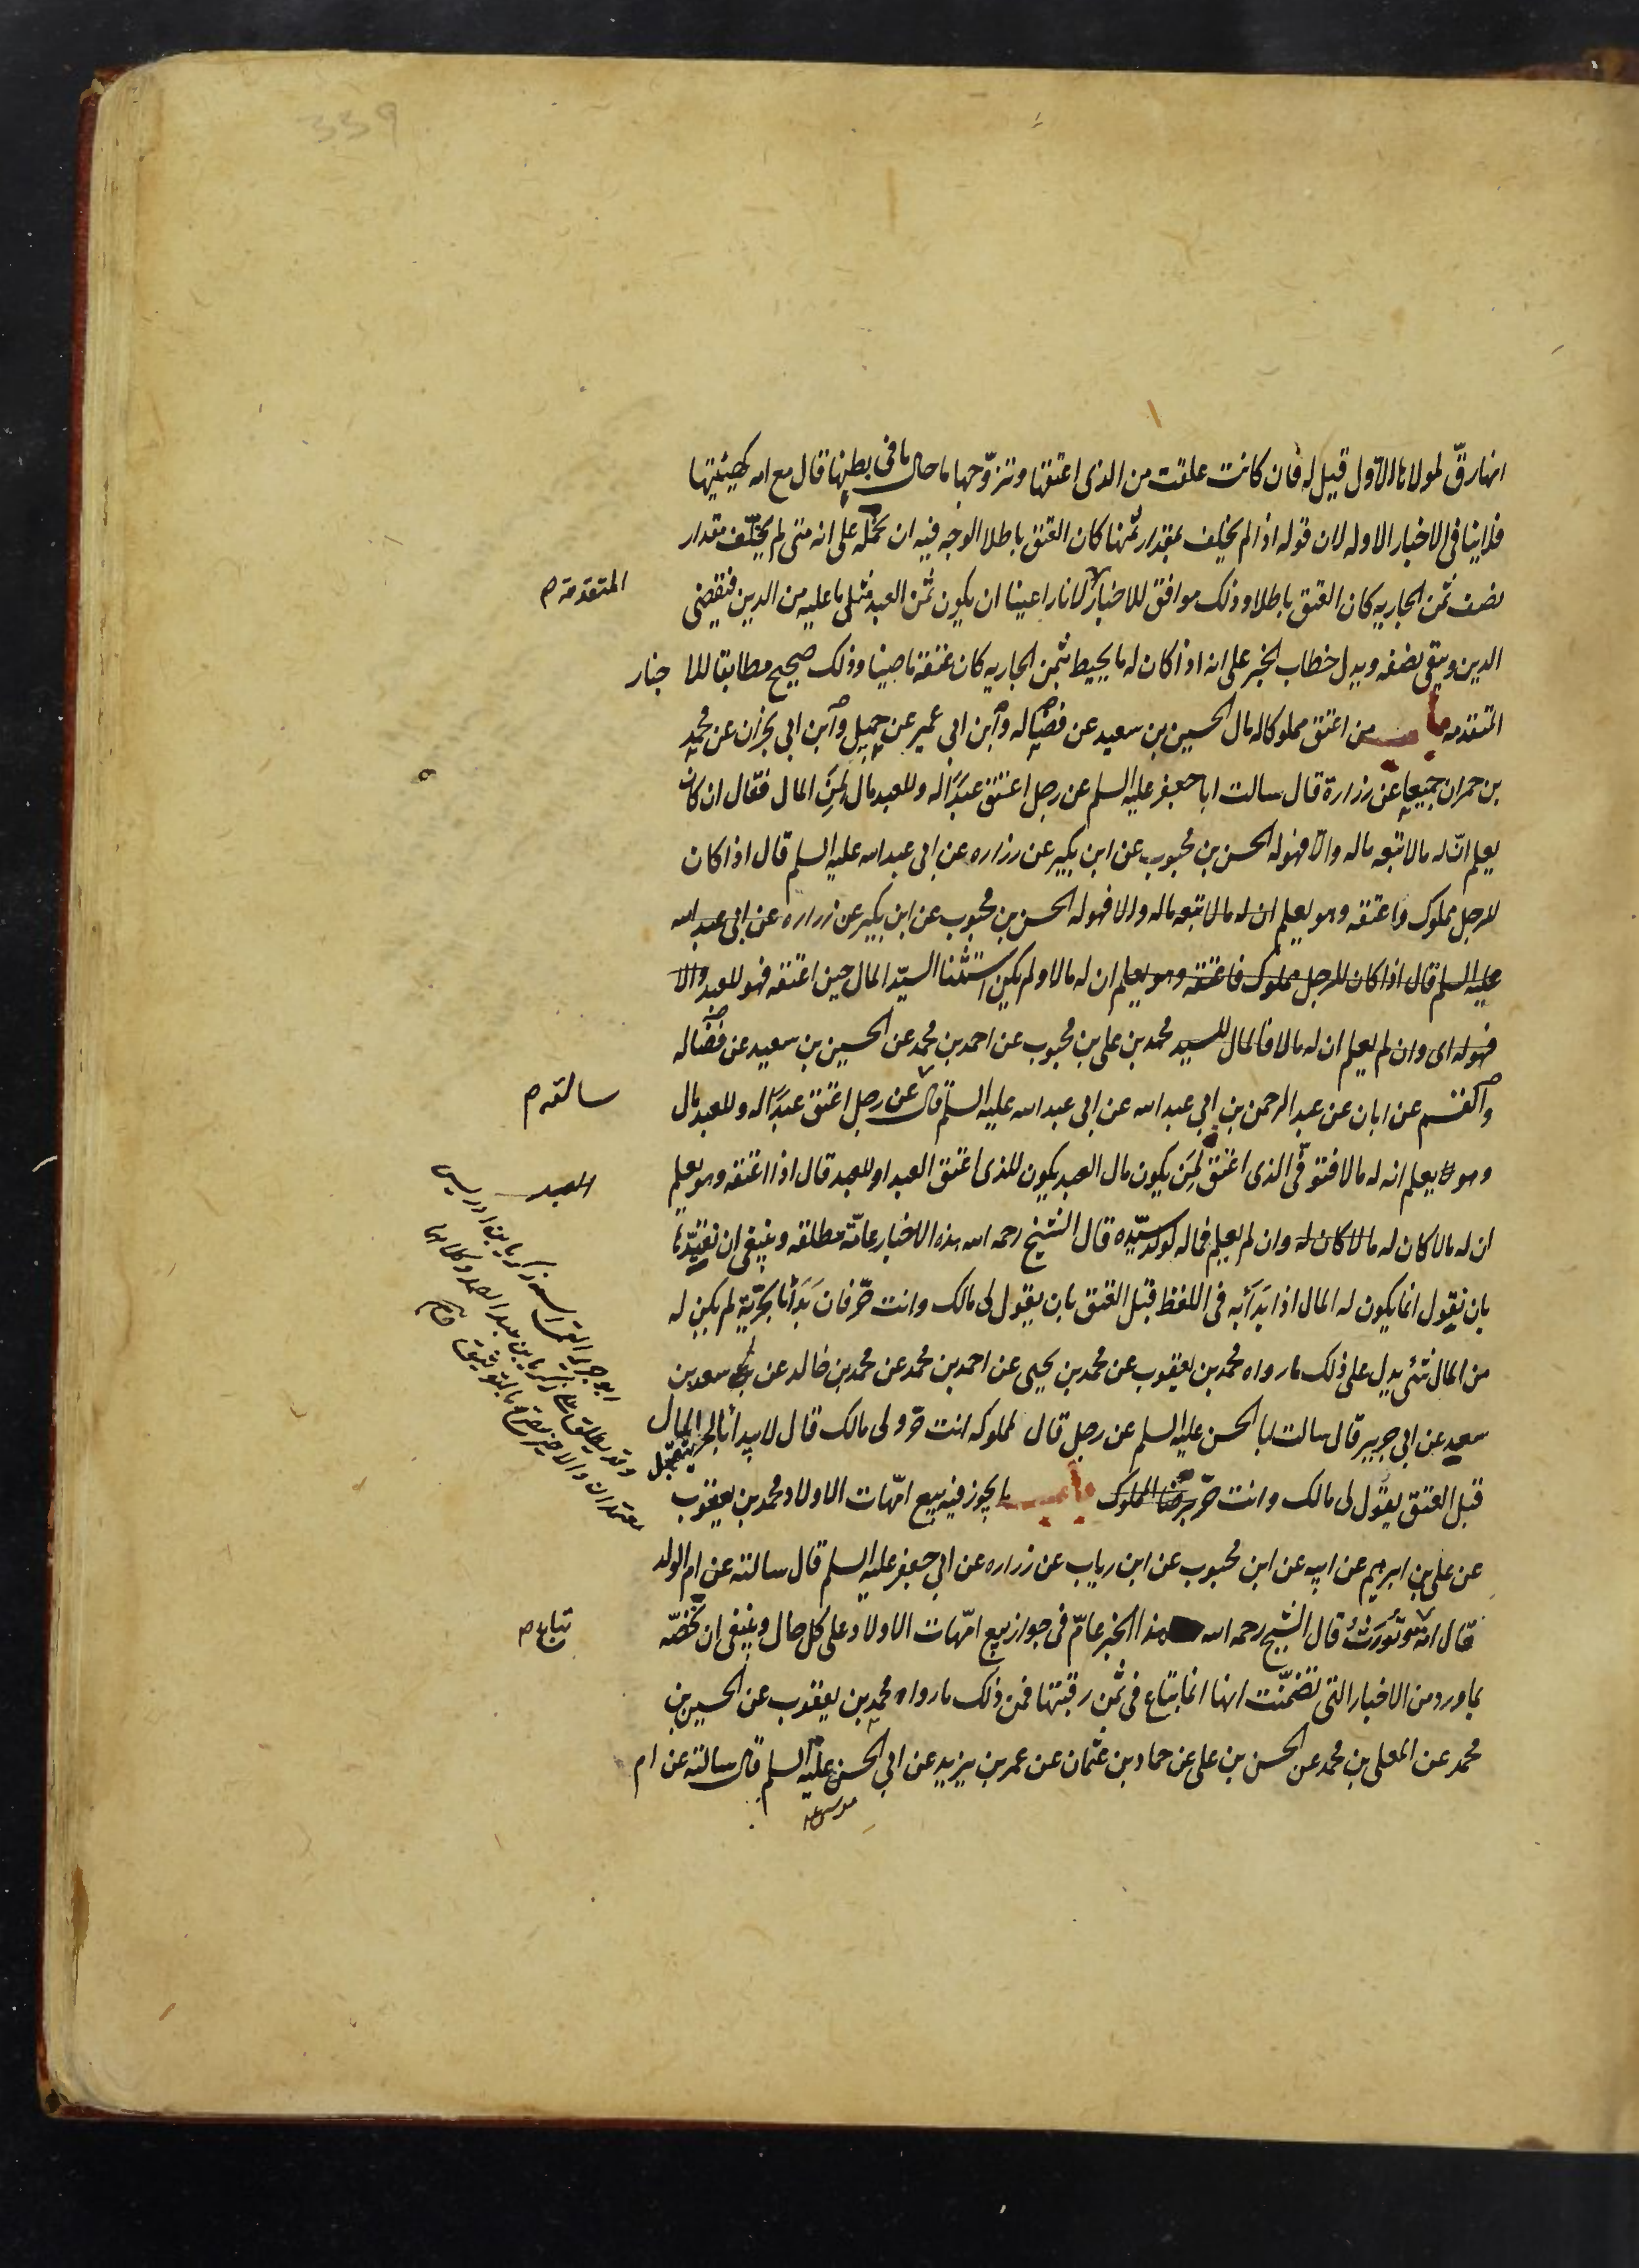 339
انها رقّ لمولاها الاوّل قيل له فان كانت علقت من الذى اعتقها وتزوّجها ما حال ما فى بطنها قال مع امه كهيئتها
فلا ينافى الاخبار الاوله لان قوله اذا لم يخلف بمقدار ثمنها كان العتق باطلا الوجه فيه ان نحمله على انه متى لم يخلّف مقدار
نصف ثمن الجاريه كان العتق باطلا وذلك موافق للاخبار لانا راعينا ان يكون ثمن العبد مثلى ما عليه من الدين فيقضى
المتقدمة م
الدين ويبقى نصفه ويدل خطاب الخبر على انه اذا كان له ما يحيط بثمن الجاريه كان عتقه ماضيا وذلك صحيح مطابقا للاخبار
المتقدمه باب من اعتق مملوكا له مال الحسين بن سعيد عن فضاله وابن ابى عمير عن جميل وابن ابى نجران عن محمد
بن حمران جميعا عن زرارة قال سالت ابا جعفر عليه السلم عن رجل اعتق عبدا له وللعبد مال لمن المال فقال ان كان
يعلم انّ له مالا تبعه ماله والّا فهو له الحسن بن محبوب عن ابن بكير عن زراره عن ابى عبد الله عليه السلم قال اذا كان
لرجل مملوك فاعتقه وهو يعلم ان له مالا تبعه ماله والا فهو له الحسن بن محبوب عن ابن بكير عن زراره عن ابى عبد الله
عليه السلم قال اذا كان للرجل مملوك فاعتقه وهو يعلم ان له مالا ولم يكن استثنا السيّد المال حين اعتقه فهو للعبد والا
فهو له اى وان لم يعلم ان له مالا فالمال للسيد محمد بن على بن محبوب عن احمد بن محمد عن الحسين بن سعيد عن فضاله
والقسم عن ابان عن عبد الرحمن بن ابى عبد الله عن ابى عبد الله عليه السلم قال عن رجل اعتق عبدا له وللعبد مال
سالته م
وهو لا يعلم انه له مالا فتوفّى الذى اعتق لمن يكون مال العبد يكون للذى اعتق العبد او للعبد قال اذا اعتقه وهو يعلم
العبد
ان له مالا كان له مالا كان له وان لم يعلم فماله لولد سيّده قال الشيخ رحمه الله هذه الاخبار عامّة مطلقه وينبغى ان نقيّدها
بان نقول انما يكون له المال اذا بَدَأ به فى اللفظ قبل العتق بان يقول لى مالك وانت حرّ فان بَدَأ بالحرّيّة لم يكن له
من المال شئ يدل على ذلك ما رواه محمد بن يعقوب عن محمد بن يحيى عن احمد بن محمد عن محمد بن خالد عن سعد بن
سعيد عن ابى جرير قال سالت ابا الحسن عليه السلم عن رجل قال لمملوكه انت حرّ ولى مالك قال لا يبدأ بالحريّة قبل المال
قبل العتق يقول لى مالك وانت حرّ برضا المملوك باب ما يجوز فيه بيع امّهات الاولاد محمد بن يعقوب
عن على بن ابرهيم عن ابيه عن ابن محبوب عن ابن رياب عن زراره عن ابى جعفر عليه السلم قال سالته عن ام الولد
قال امة تُورَثُ قال الشيخ رحمه الله هذا الخبر عامّ فى جواز بيع امّهات الاولاد على كل حال وينبغى ان نخصّه
تباع م
بما ورد من الاخبار التى تضمّنت انها انما تباع فى ثمن رقبتها فمن ذلك ما رواه محمد بن يعقوب عن الحسين بن
محمد عن المعلى بن محمد عن الحسن بن على عن حماد بن عثمان عن عمر بن يزيد عن ابى الحسن عليه السلم قال سالته عن ام
موسى
ابو جرير القمى اسمه زكريا بن ادريس
وقد يطلق على زكريا بن عبد الصمد وكلاهما
معتمدان والاخير بالتوثيق